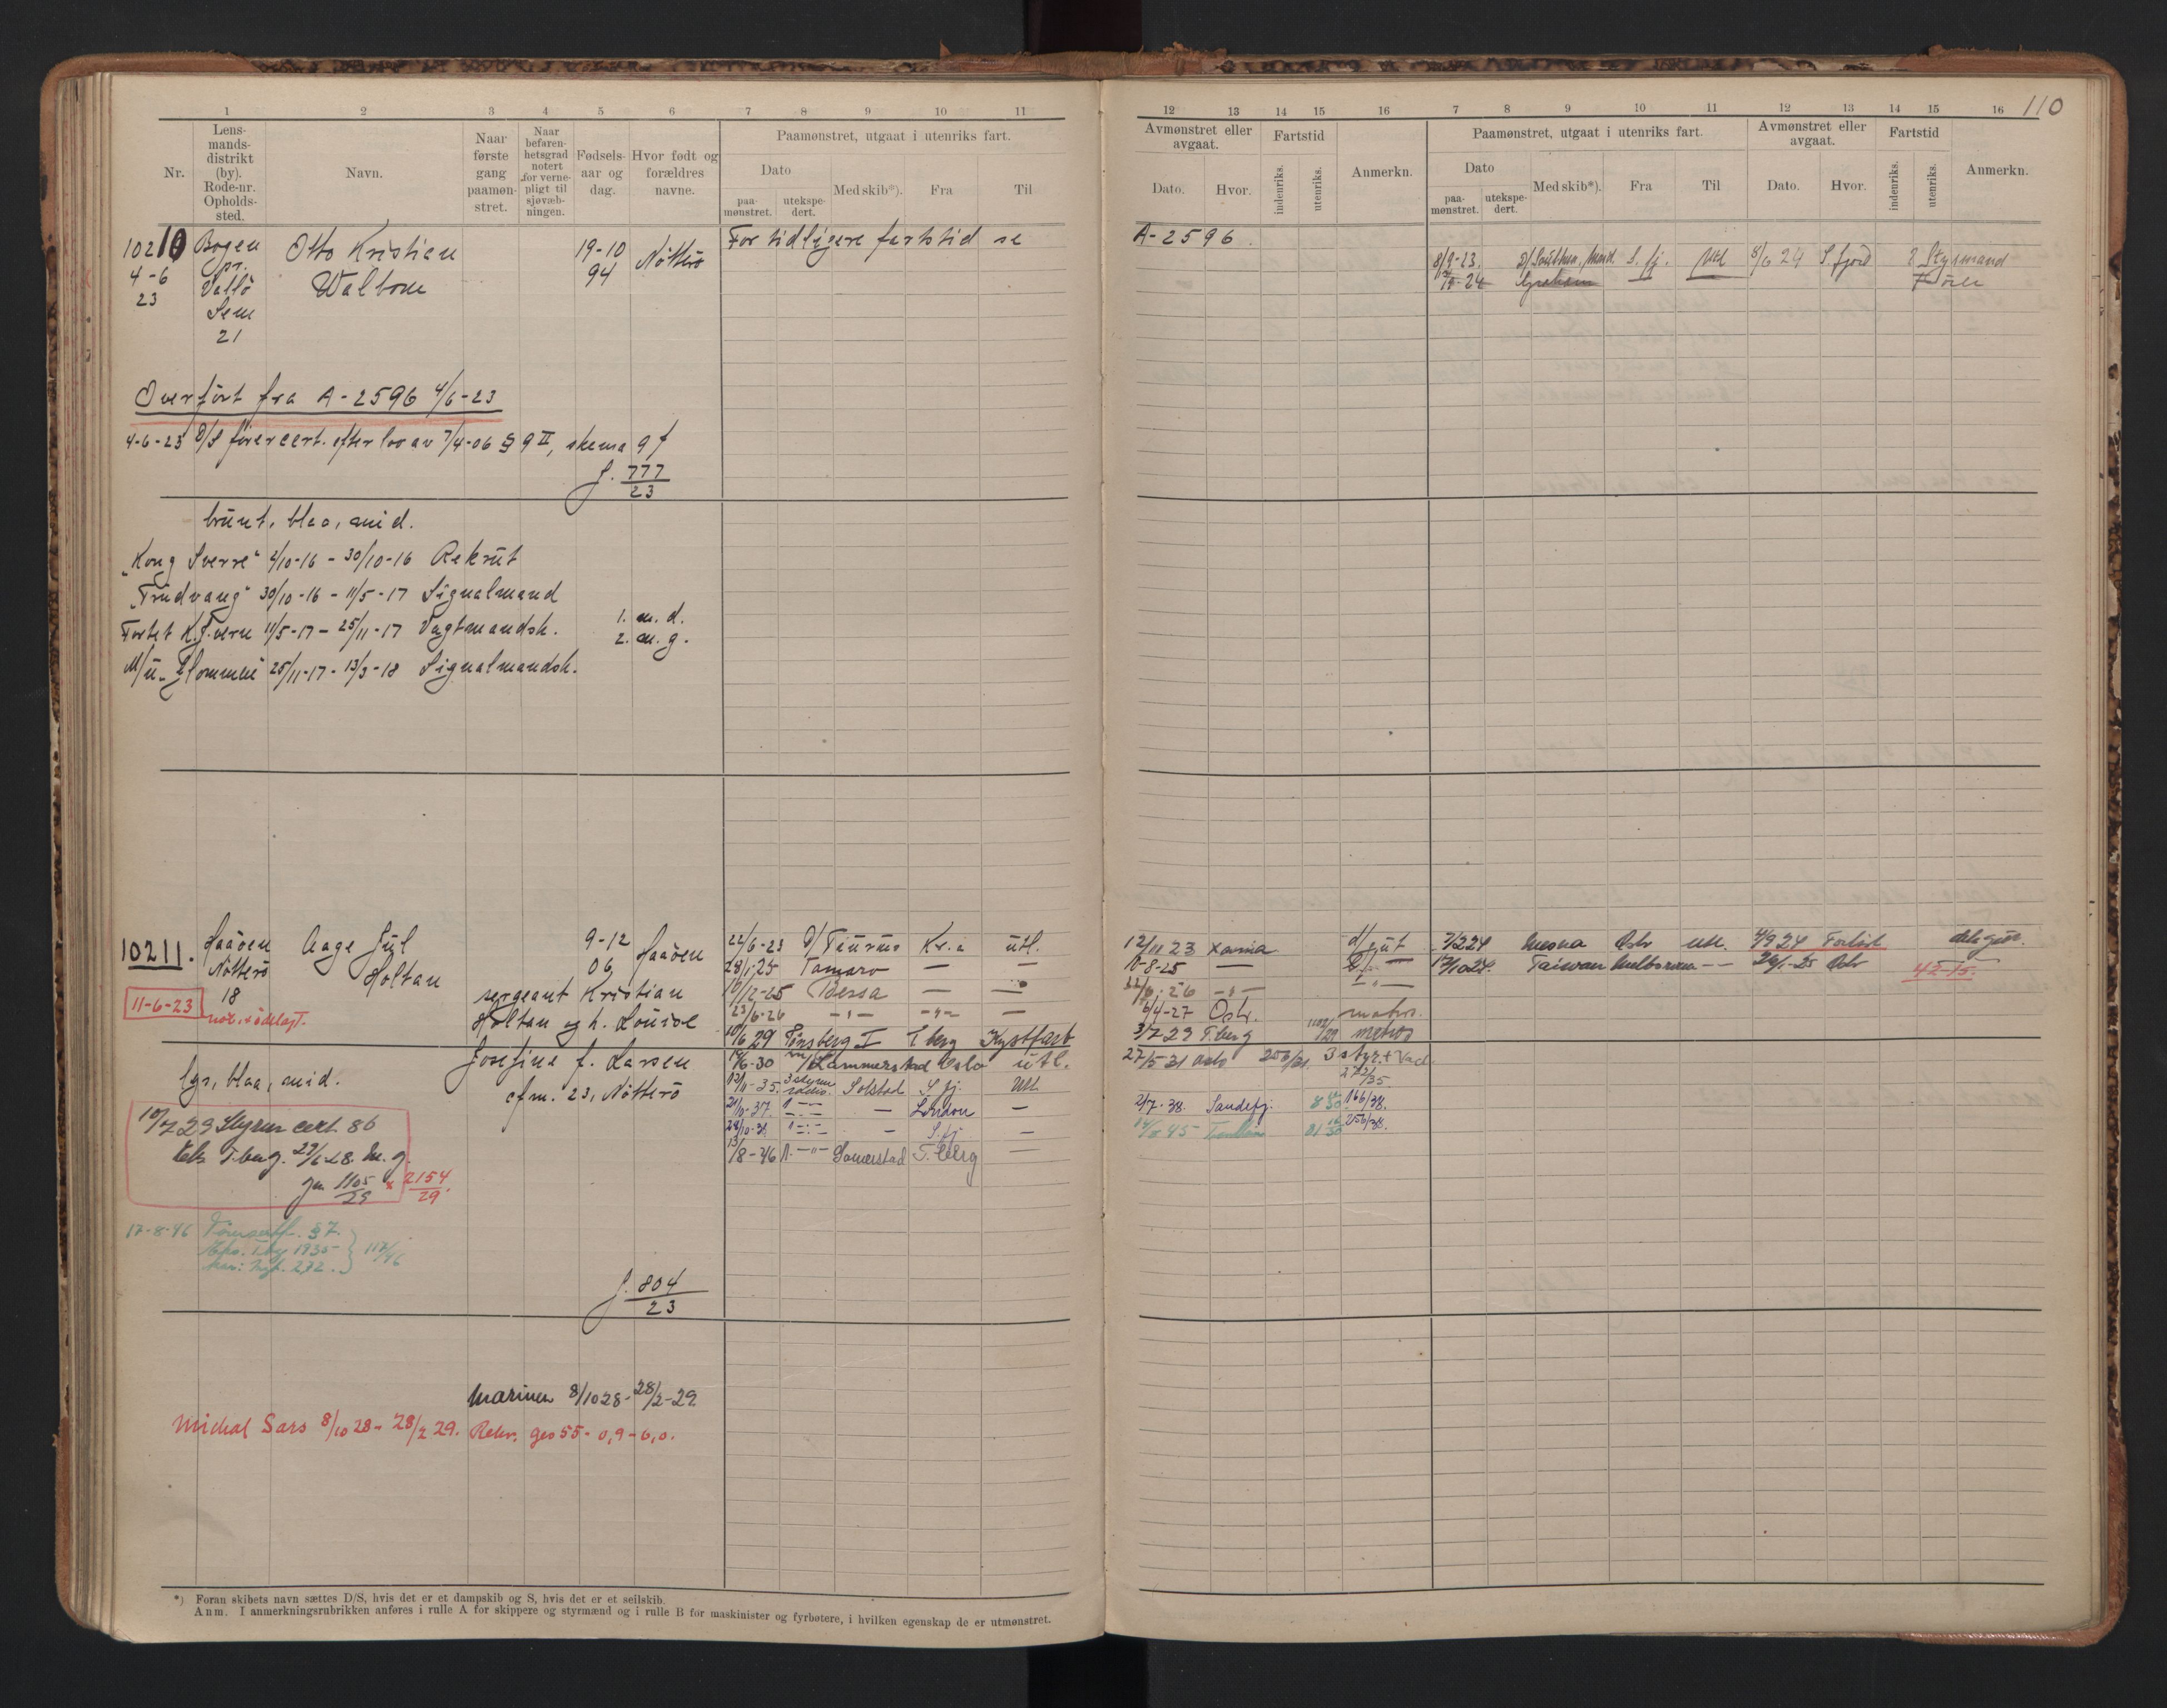 1 2 3 4 5 6 7 8 9 10 11
Nr.
Lens-
mands-
distrikt
(by).
Rode-nr.
Opholds-
sted.
Navn.
Naar
første
gang
paamøn-
stret.
Naar
befaren-
hetsgrad
notert
for verne-
pligt til
sjøvæb-
ningen.
Fødsels-
aar og
dag.
Hvor født og
forældres
navne.
Paamønstret, utgaat i utenriks fart.
Dato
paa-
mønstret.
utekspe-
dert.
Med skib*).
Fra
Til
10210 Bogen Otto Kristian 19-10 Nötterö For tidligere fartstid se
4-6 pr. 94
23 Vallö Walbom
Sem
21
Overført fra A-2596 4/6-23
4-6-23 D/S förercert. efter lov av 7/4-06 § 9 II, skema 9 f
J. 777
23
brunt, blaa, mid.
"Kong Sverre" 2/10-16 - 30/10-16 Rekrut
"Trudvang" 30/10-16 - 11/5-17 Signalmand
Fortet K. Sverre 11/5-17 - 25/11-17 Vagtmandsk. 1. m. d.
2. m. g.
M/u "Glommen" 25/11-17 - 13/3-18 Signalmandsk.
10211. Haaöen Aage Jul 9-12 Haaöen 22/6-23 D/ Taurus Kr.a utl.
Nötterö Holtan 06 28/1-25 Tamaro — —
18 sergeant Kristian 10/12-25 Bessa — —
11-6-23 Holtan og h. Louise 23/6-26 -"- -"- —
Josefine f. Larsen 10/6 29 Tønsberg I T.berg Kystfart
lys, blaa, mid. 19/6-30 Lammerstad Oslo utl.
cfm. 23, Nötterö 13/11-35. 3 styrm Solstad S.fj. Utl.
21/10-37. — London —
10/7 29 Styrm cert. 86 28/10-38. — S.fj —
Eks. T.berg. 29/6-28. M. g. 13/8-46 Somerstad T.berg —
Jn. 1105
29
2154
29.
17-8-46 Förersertf. §7.
Eks. T.bg 1935
117/46
J. 804
23
Marinen 8/10 28 - 28/2-29
Michal Sars 8/10 28 - 28/2 29. Rekr. ges 55 - 0,9 - 6,0.
*) Foran skibets navn sættes D/S, hvis det er et dampskib og S, hvis det er et seilskib.
Anm. I anmerkningsrubrikken anføres i rulle A for skippere og styrmænd og i rulle B for maskinister og fyrbøtere, i hvilken egenskap de er utmønstret.
110
12 13 14 15 16 7 8 9 10 11 12 13 14 15 16
Avmønstret eller
avgaat.
Dato.
Hvor.
Fartstid
indenriks.
utenriks.
Anmerkn.
Paamønstret, utgaat i utenriks fart.
Dato
paa-
mønstret.
utekspe-
dert.
Med skib*).
Fra
Til
Avmønstret eller
avgaat.
Dato.
Hvor.
Fartstid
indenriks.
utenriks.
Anmerkn.
A-2596.
8/9-23. D/ Southern Maid S. fj. Utl 8/6 24 S. fjord 2 Styrmand
12/11 23 Xania d/gut 7/2 24 Mesna Oslo utl. 4/9 24 Forlist deksgut.
10-8-25 — 17/10 24. Taiwan Melbourne -- 26/1-25 Oslo 42-15.
22/6-26 -"-
6/4-27 Oslo. matros.
3/7 29 T.berg 1102/29 matros
27/5-31 Oslo 256/31. 3 styr.
272/35.
2/7-38. Sandefj. 166/38.
256/38.